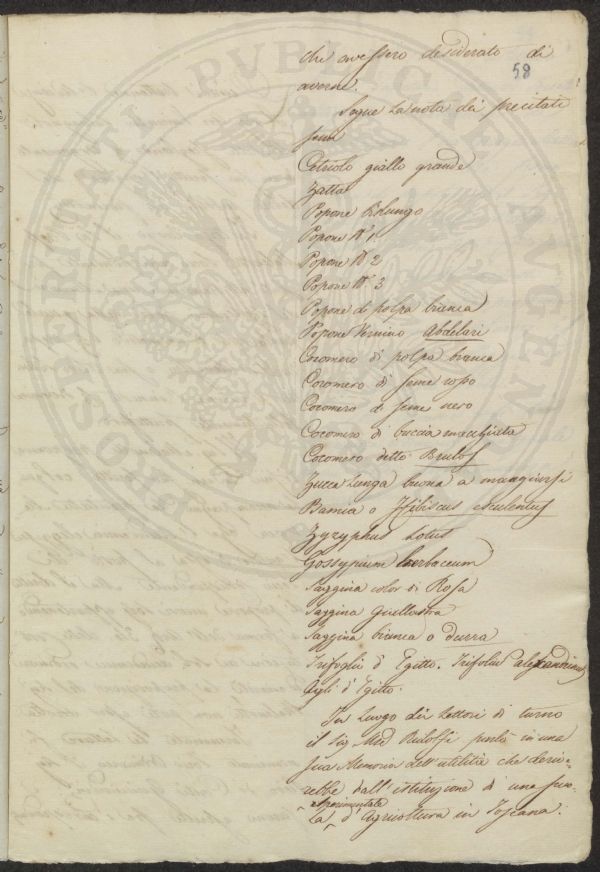 che avessero desiderato di
58
averne.
Segue la nota dei precitati
semi
Cetriolo giallo grande
Zatta
Popone Bislungo
Popone N° 1
Popone N° 2
Popone N° 3
Popone di polpa bianca
Popone Vernino Abdelari
Cocomero di polpa bianca
Cocomero di seme rosso
Cocomero di seme nero
Cocomero di buccia macchiata
Cocomero detto
Zucca Lunga buona a mangiarsi
Bamia o Hibiscus esculentus
Zyzyphus Lotus
Gossypium herbaceum
Saggina color di Rosa
Saggina Giallastra
Saggina bianca o durra
Trifoglio d'Egitto. Trifolium alexandrinum
Agli d'Egitto.
In Luogo dei Lettori di turno
il Sig. Ridolfi portò in una
sua Memoria dell'utilità che deriverebbe
rebbe dall'istituzione di una scuo-
sperimentale
la d'Agricoltura in Toscana.